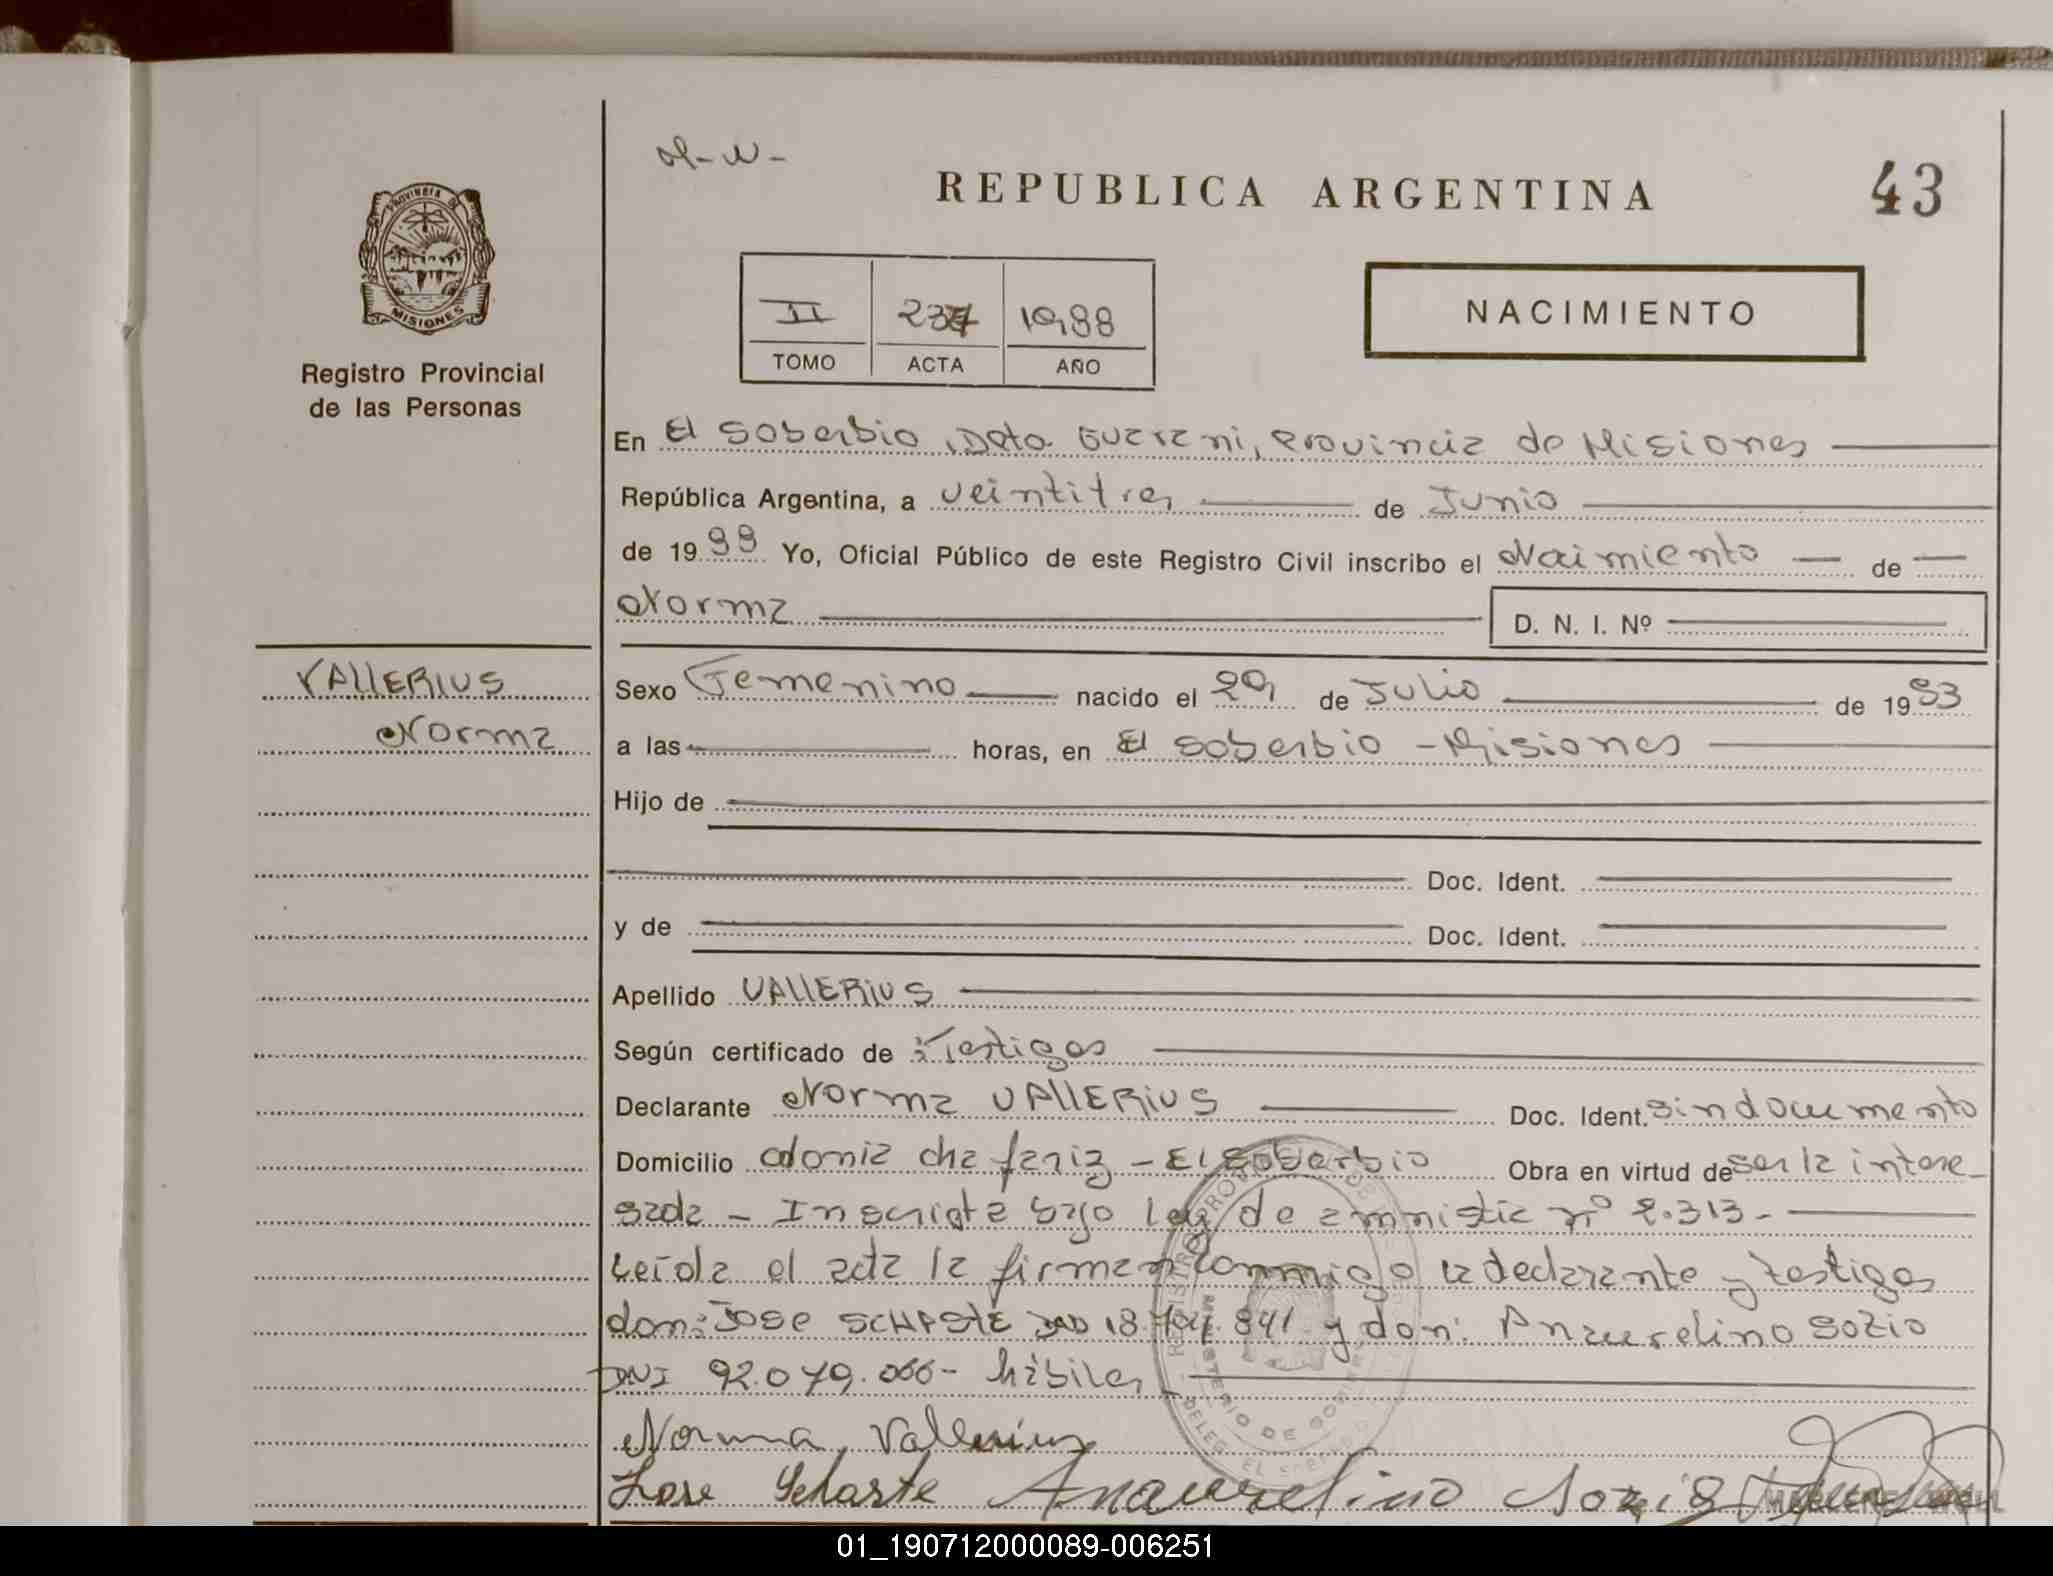 M-N-
REPUBLICA ARGENTINA
43
PROVINCIA DE
MISIONES
Registro Provincial
de las Personas
II
TOMO
ACTA
1988
AÑO
NACIMIENTO
En El Soberbio, Dpto. Guarani, Provincia de Misiones
República Argentina, a veintitres de Junio
de 1988 Yo, Oficial Público de este Registro Civil inscribo el Naimiento de
Norma
D. N. I. Nº
VALLERIUS
Norma
Sexo Femenino nacido el 29 de Julio de 19
a las horas, en El Soberbio - Misiones
Hijo de
Doc. Ident.
y de Doc. Ident.
Apellido VALLERIUS
Según certificado de : Testigos
Declarante Norma VALLERIUS Doc. Ident. sin documento
Domicilio colonia cha fariz - El Soberbio Obra en virtud de ser la intere-
sada - Inscripta bajo Ley de amnistia nº 2.313.-
Leída el acta la firman conmigo la declarante y testigos
don: Jose 18. 841 y don: Anaurelino Sozio
DNI 92.079.066- hábiles
Norma Vallerius
Jose Anaurelino
01_190712000089-006251